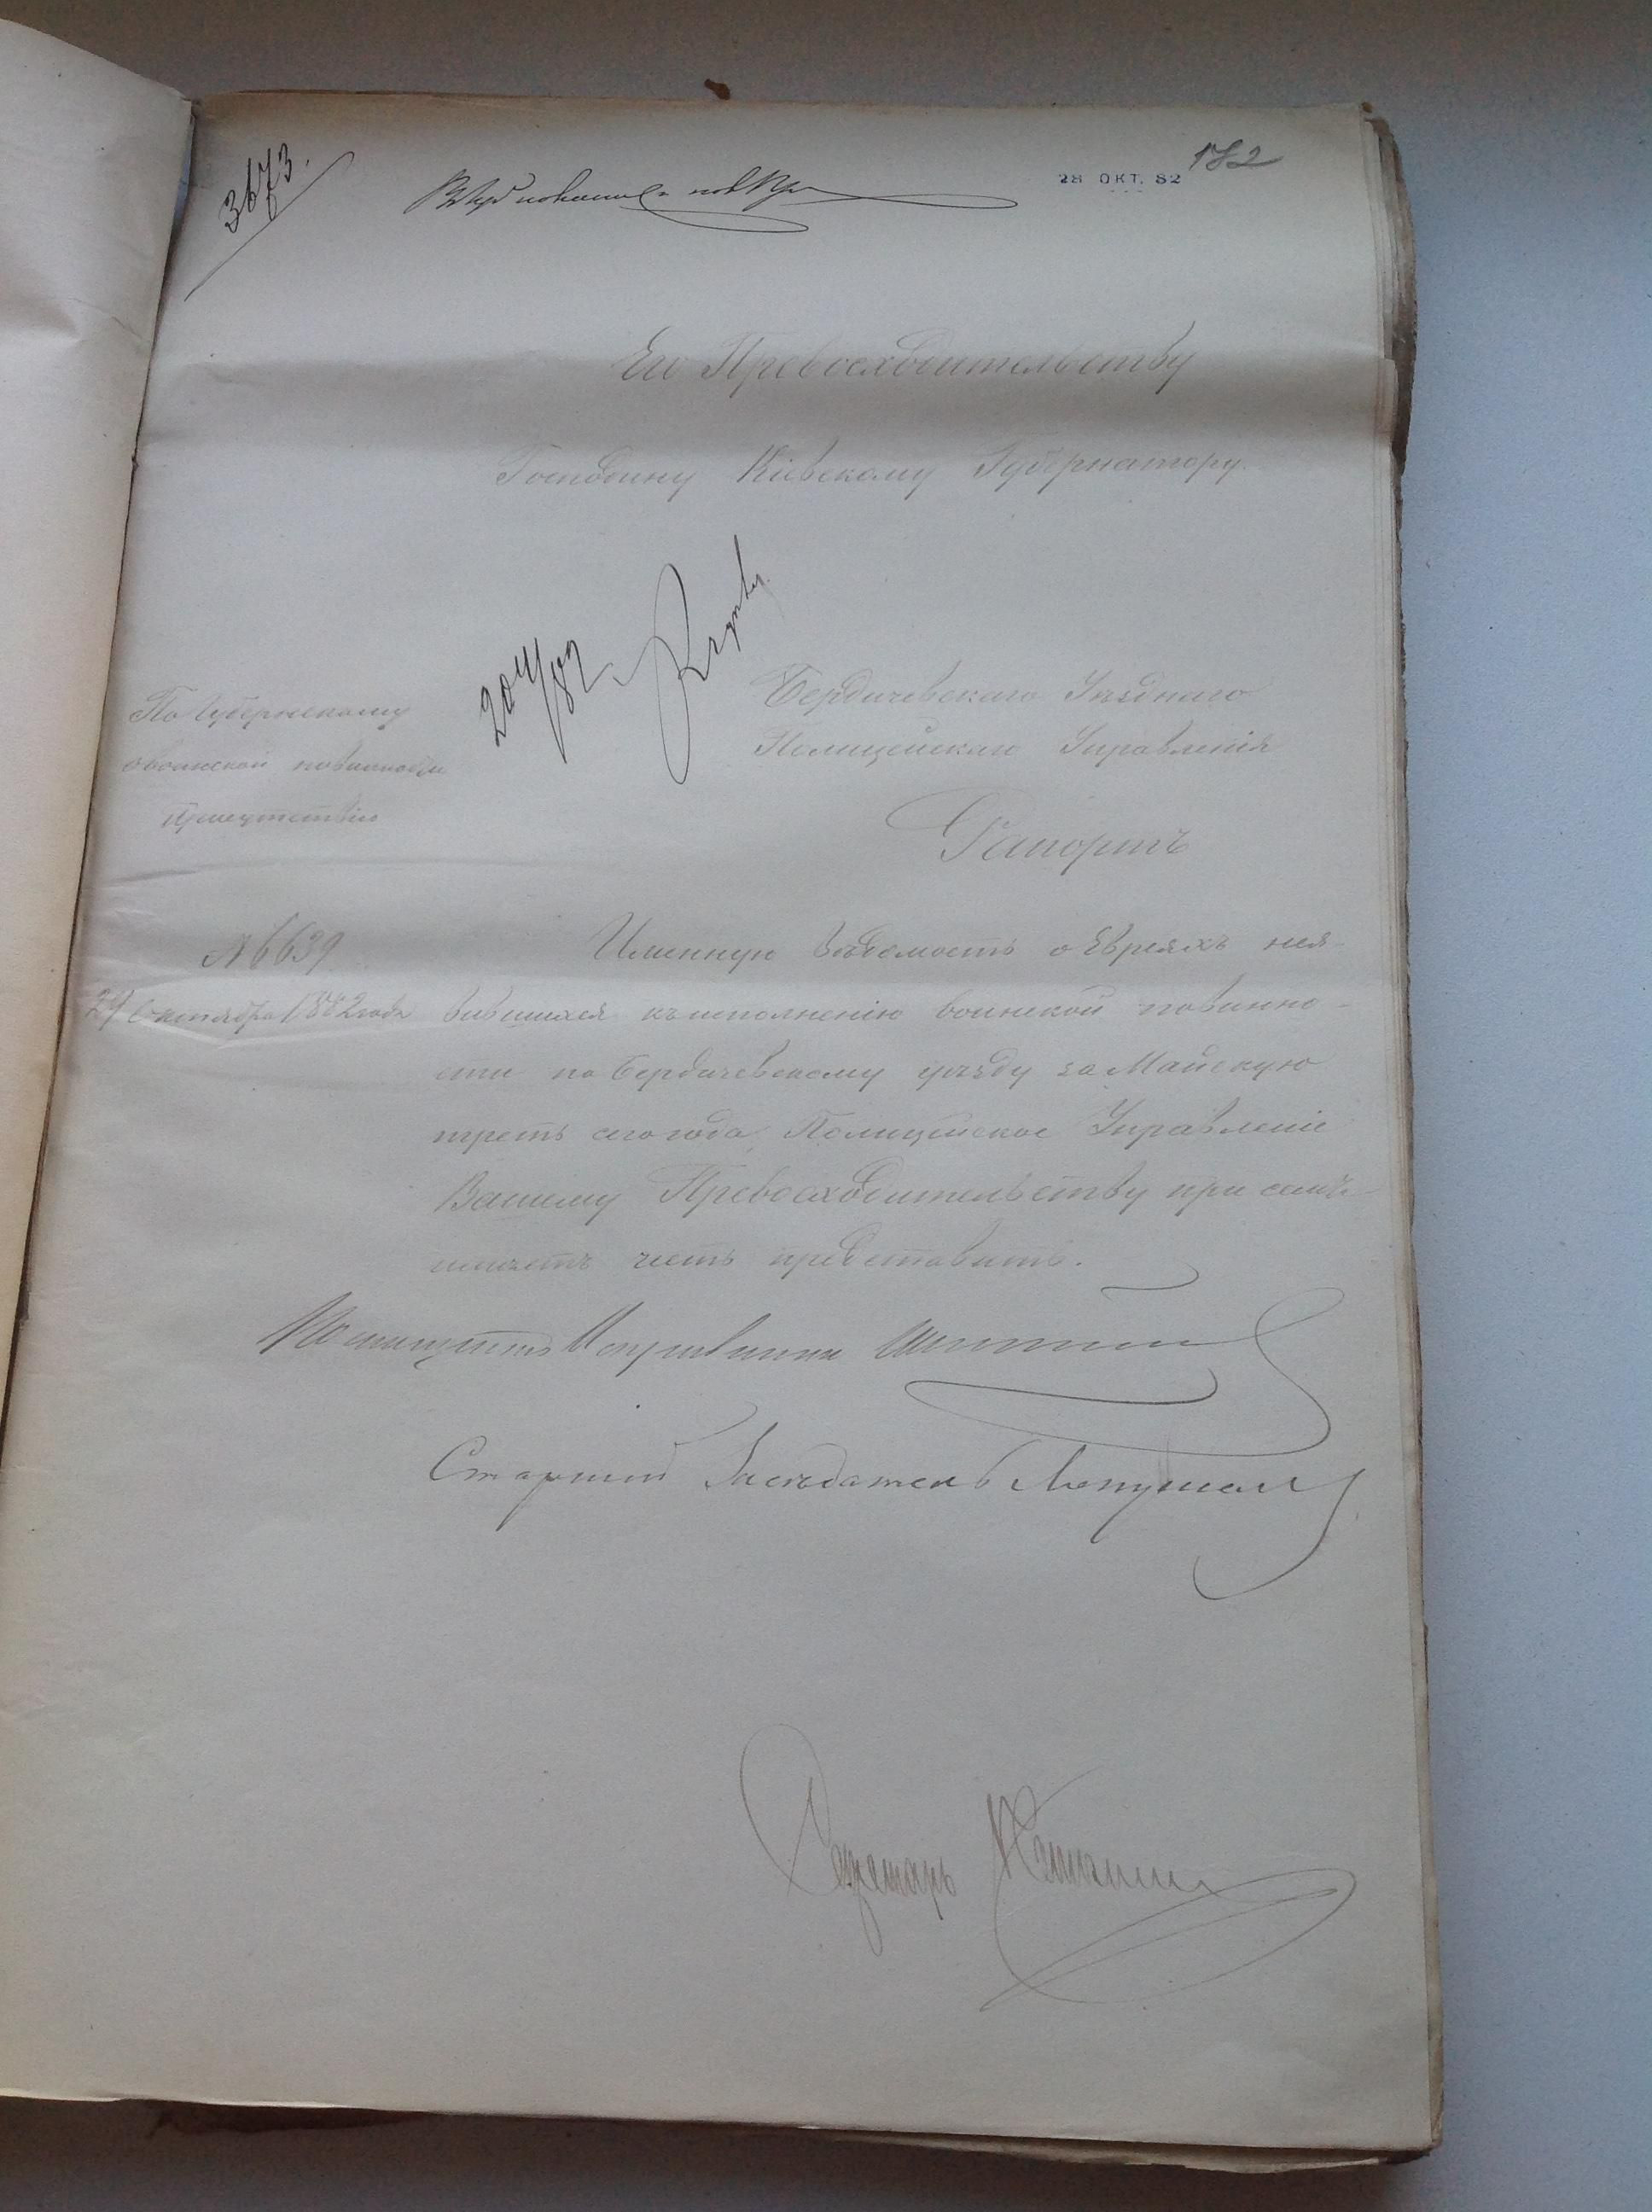 3673.
28 ОКТ. 82
182
Его Превосходительству
Господину Кіевскому Губернатору.
По Губернскому
о воинской повинности
присутствію
Бердичевскаго Уѣзднаго
Полицейскаго Управленія
Рапортъ
№ 6639
1882 года
Именную вѣдомость о Евреяхъ нея-
вившихся къ исполненію воинской повинно-
сти по Бердичевскому уѣзду за Майскую
треть сего года, Полицейское Управленіе
Вашему Превосходительству при семъ
имѣетъ честь представить.
Исправника
Старшій Засѣдатель
Секретарь